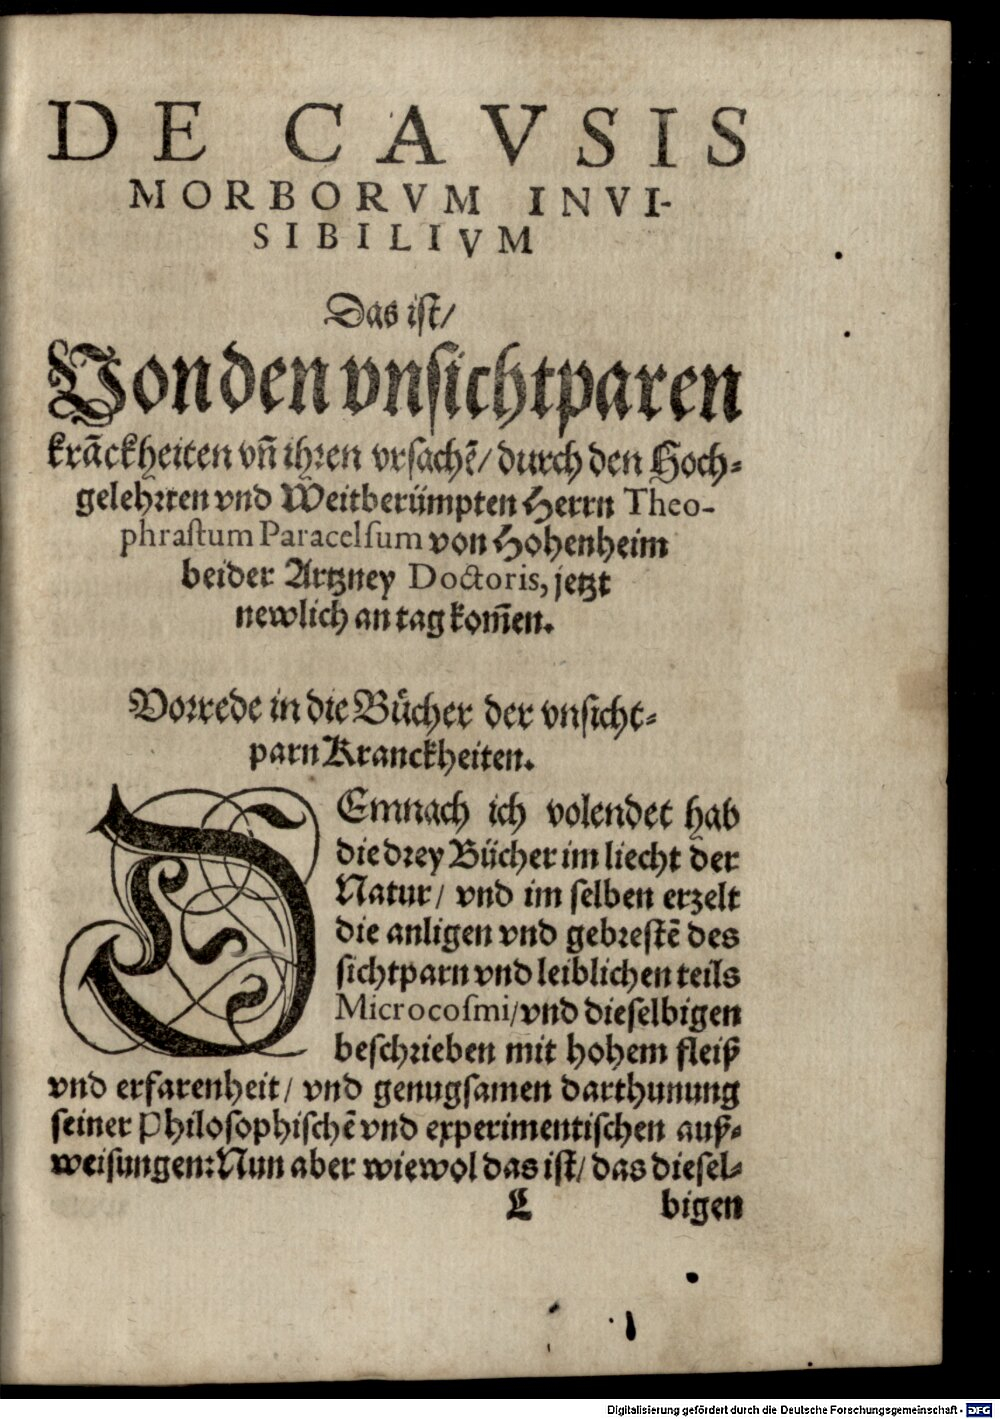 DE CAVSIS
MORBORVM INVI-
SIBILIVM
Das ist/
Von den vnsichtparen
krãckheiten vñ ihren vrsachẽ/ durch den Hoch-
gelehrten vnd Weitberümpten Herrn Theo-
phrastum Paracelsum von Hohenheim
beider Artzney Doctoris, jetzt
newlich an tag kom̃en.
Vorrede in die Bücher der vnsicht-
parn Kranckheiten.
DEmnach ich volendet hab
die drey Bücher im liecht der
Natur/ vnd im selben erzelt
die anligen vnd gebrestẽ des
sichtparn vnd leiblichen teils
Microcosmi/ vnd dieselbigen
beschrieben mit hohem fleiß
vnd erfarenheit/ vnd genugsamen darthunung
seiner Philosophischẽ vnd experimentischen auß-
weisungen: Nun aber wiewol das ist/ das diesel-
L bigen
Digitalisierung gefördert durch die Deutsche Forschungsgemeinschaft - DFG